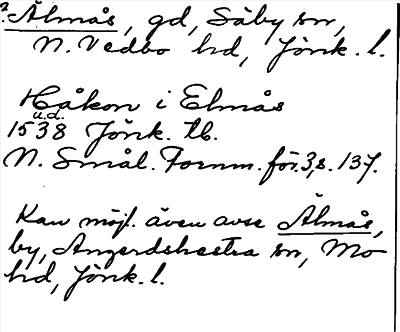 ? Älmås, gd, Säby sn,
N. Vedbo hd, Jönk. l.
Håkon i Elmås
u.d.
1538 Jönk. tb.
N. Smål. Fornm. för. 3, s. 137.
Kan möjl. även avse Älmås,
by, Angerdshestra sn, Mo
hd, Jönk. l.